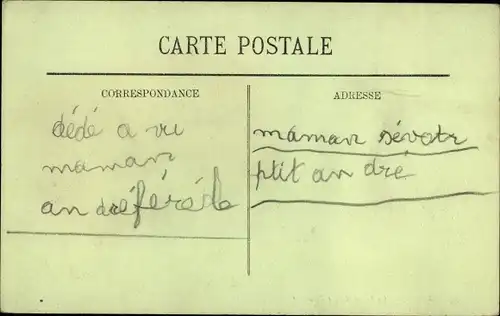 CARTE POSTALE
CORRESPONDANCE
dédé a vu
maman
an dré
ADRESSE
maman
ptit an dré